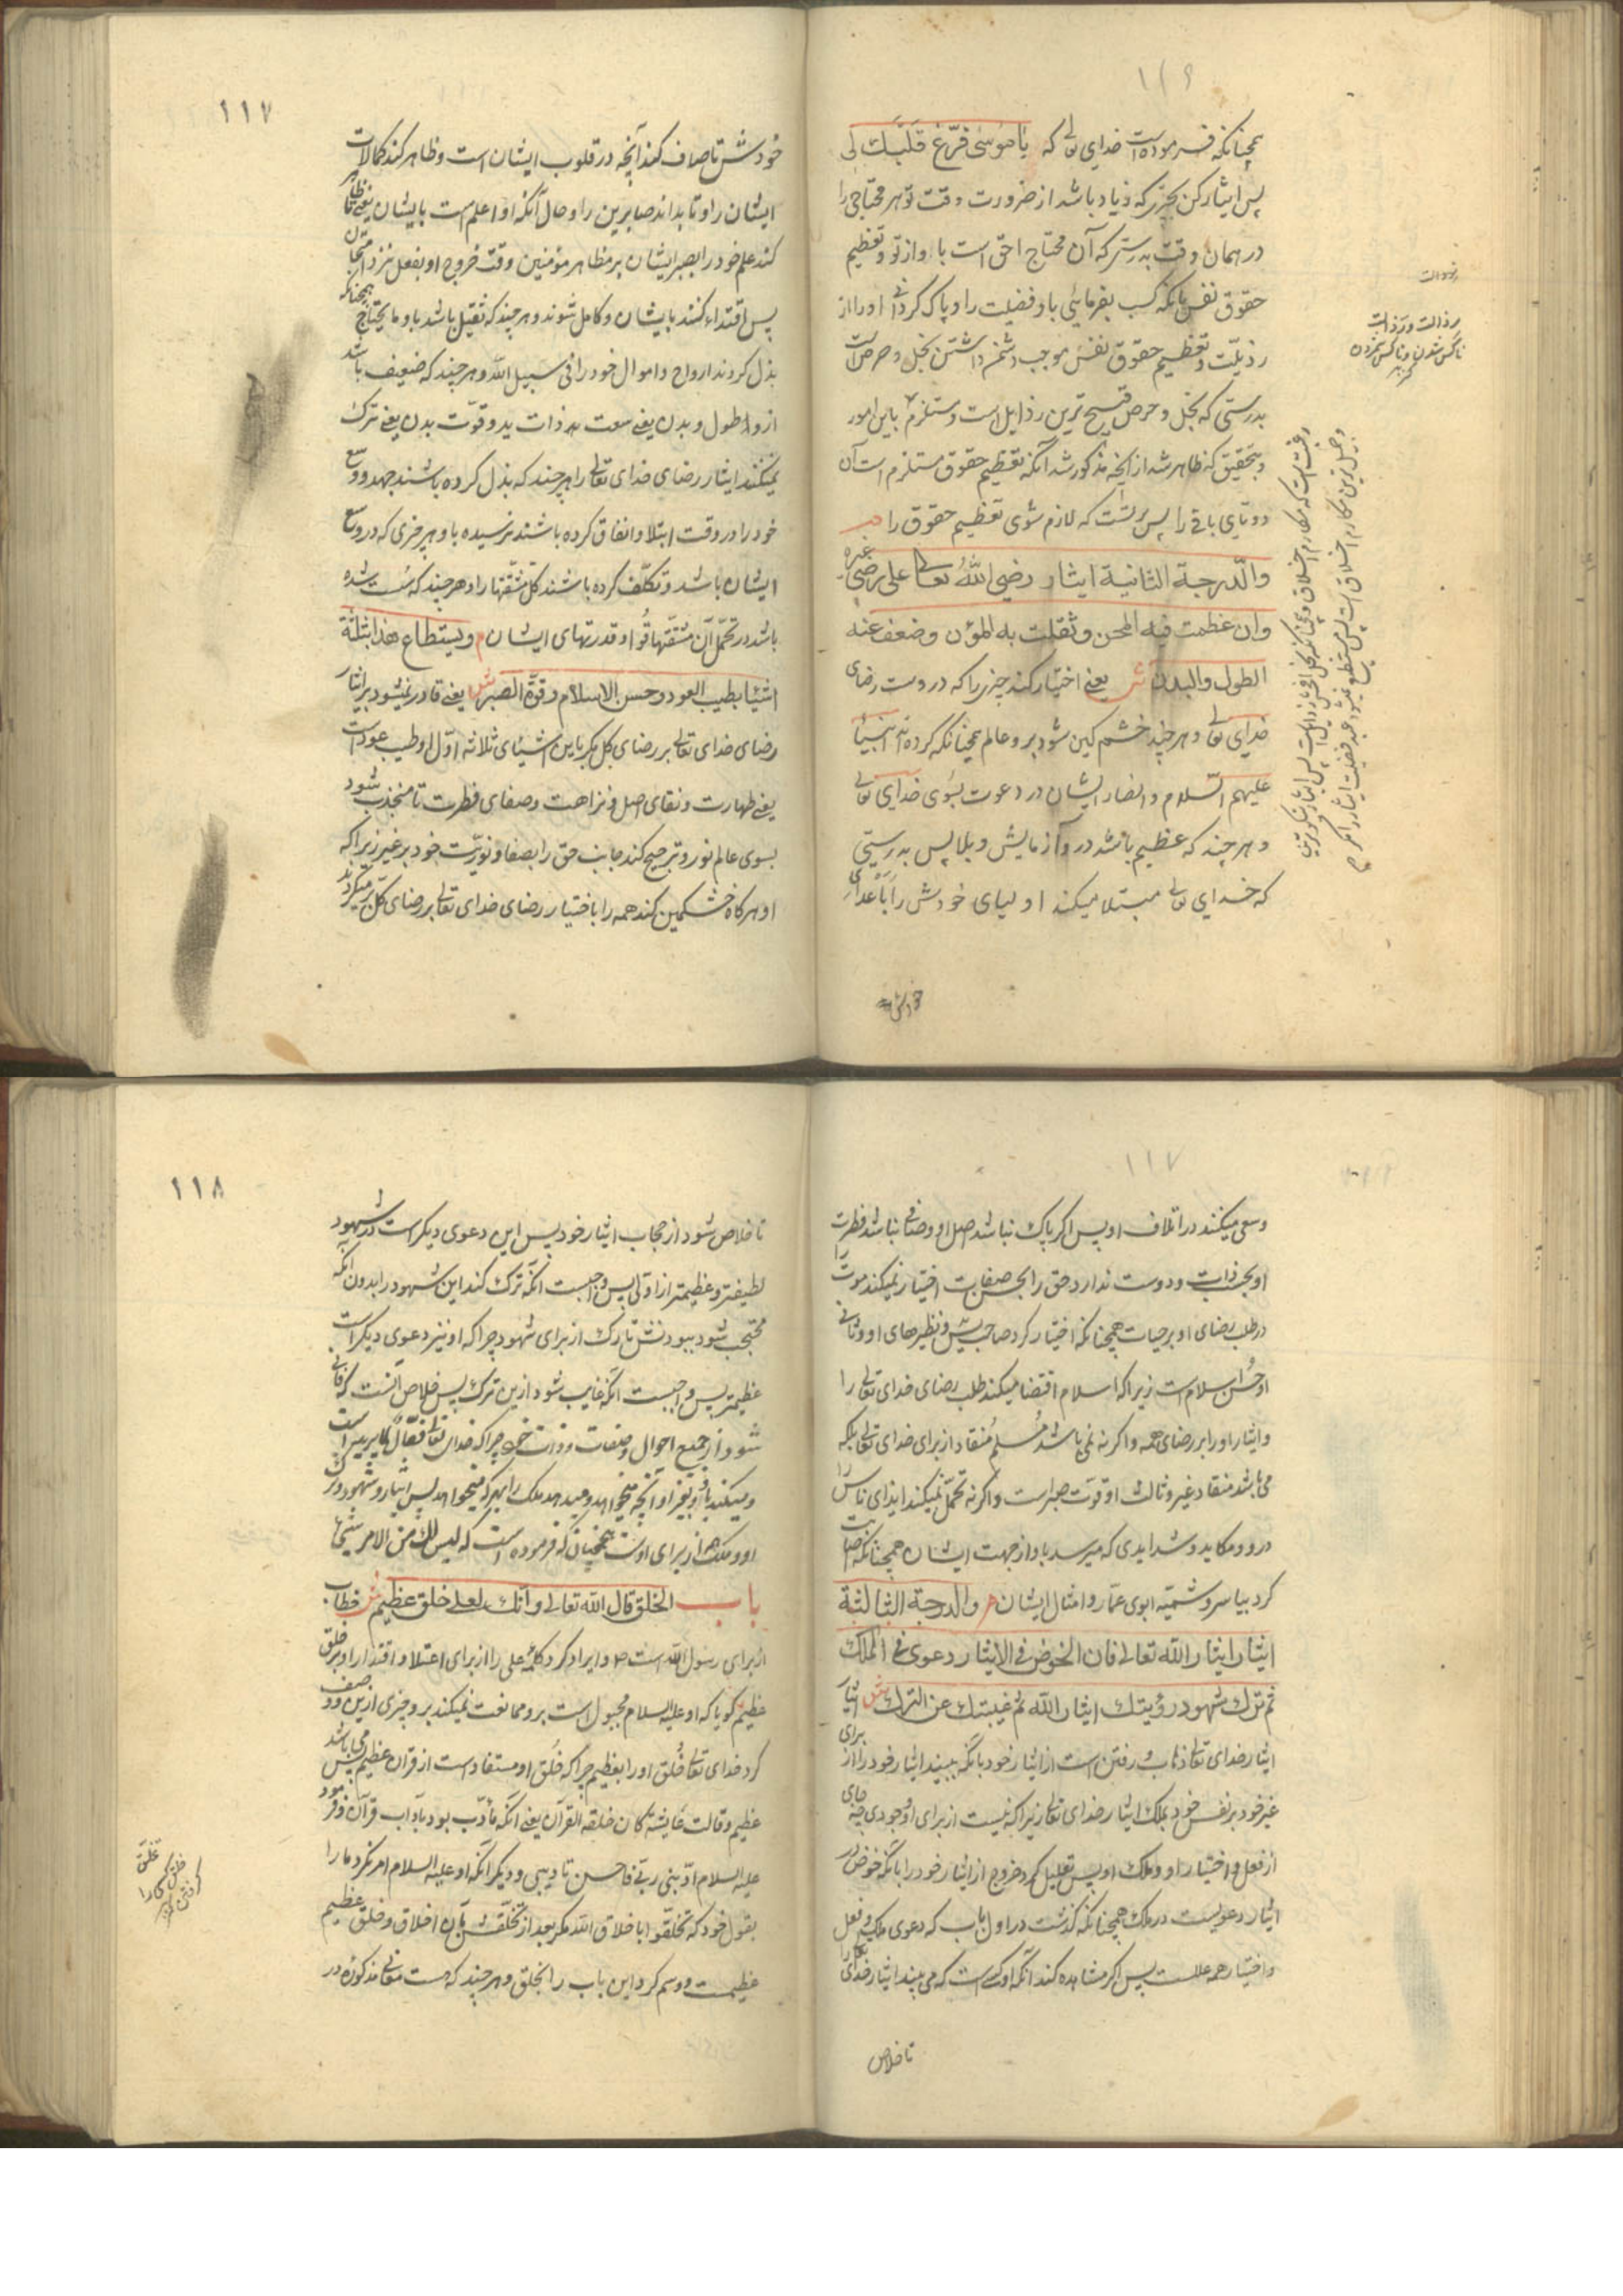 ۱۱۶
همچنانکه فرموده است خدای تعالی که یا موسی فرّغ قلبک لی
پس ایثار کن بچیزی که زیاد باشد از ضرورت وقت تو هر محتاجی را
در همان وقت بدرستی که آن محتاج احق است باو از تو و تعظیم
حقوق نفس بآنکه کسب بفرمائی باو فضیلت را و پاک گردانی او را از
رذیلت و تعظیم حقوق نفس موجب دشمن داشتن بخل و حرص است
بدرستی که بخل و حرص قبیح ترین رذایل است و مستلزم باین امور
و بتحقیق که ظاهر شد از آنچه مذکور شد آنکه تعظیم حقوق مستلزم است آن
دو تای باقی را پس بر تست که لازم شوی تعظیم حقوق را
والدرجة الثانیة ایثار رضی الله تعالی علی رضی غیره
وان عظمت فیه المحن وثقلت به المؤن وضعف عنه
الطول والبدن ش یعنی اختیار کند چیزی را که دروست رضای
خدای تعالی و هر چند خشم کین شود برو عالم همچنانکه کرده اند انبیا
علیهم السلام و انصار ایشان در دعوت بسوی خدای تعالی
و هر چند که عظیم باشد درو آزمایش و بلا پس بدرستی
که خدای تعالی مبتلا میکند اولیای خودش را باعدای
خودش
رذالت
ناکس شدن و ناکس کردن
۱۱۷
خودش تا صاف کند آنچه در قلوب ایشان است و ظاهر کند کمالات
ایشان را و تا بداند صابرین را و حال آنکه او اعلم است بایشان یعنی تا ظاهر
کند علم خود را بصبر ایشان بر مظاهر مؤمنین وقت خروج او بفعل نزد امتحان
پس اقتداء کنند بایشان و کامل شوند و هر چند که ثقیل باشد باو ما یحتاج همچنانکه
بذل کردند ارواح و اموال خود را فی سبیل الله و هر چند که ضعیف باشد
ازو طول و بدن یعنی سعت ید ذات ید و قوّت بدن یعنی ترک
نمیکنند ایثار رضای خدای تعالی را هر چند که بذل کرده باشند جهد و وسع
خود را در وقت ابتلا و انفاق کرده باشند نرسیده باو هر چیزی که در وسع
ایشان باشد و تکلّف کرده باشند کل مشقتها را و هر چند که سست شده
باشد در تحمّل آن مشقتها قوا و قدرتهای ایشان م ویستطاع هذا بثلثة
اشیا بطیب العود وحسن الاسلام وقوّة الصبر ش یعنی قادر نمیشود بر ایثار
رضای خدای تعالی بر رضای کل مگر باین اشیای ثلاثه اوّل او طیب عود است
یعنی طهارت و نقای اصل و نزاهت و صفای فطرت تا منجذب شود
بسوی عالم نور و ترجیح کند جانب حق را بصفا و نوریّت خود بر غیر زیرا که
او هر کاه خشمکین کند همه را باختیار رضای خدای تعالی بر رضای کل
۱۱۷
وسعی میکنند در اتلاف او پس اکر پاک نباشد اصل او و صافی نباشد فطرت
او بحسب ذات و دوست ندارد حق را بحسن صفات اختیار نمیکند موت را
در طلب رضای او بر حیات همچنانکه اختیار کرد صاحب یس و نظیرهای او و ثانی
او حسن اسلام است زیرا که اسلام اقتضا میکند طلب رضای خدای تعالی را
و ایثار او را بر رضای همه و اکر نه نمی باشد مُسلِم مُنقاد از برای خدای تعالی بلکه
می باشد منقاد غیر و ثالث او قوّت صبر است و اکر نه تحمّل نمیکند ایذای ناس را
درو و مکاید و شدایدی که میرسد باو از جهت ایشان همچنانکه اصابت
کرد بیاسر و سمیّه ابوی عمّار و امثال ایشان م والدرجة الثالثة
ایثار ایثار الله تعالی فان الخوض فی الایثار دعوی فی الملک
ثم ترک شهود رؤیتک ایثار الله ثم غیبتک عن الترک ش ایثار
ایثار خدای تعالی ذهاب و رفتن است از ایثار خود بآنکه نبیند ایثار خود را از برای
غیر خود بر نفس خود بلک ایثار خدای تعالی زیرا که نیست از برای او وجودی چه جای
از فعل و اختیار او و ملک او پس تعلیل کرد خروج از ایثار خود را بآنکه خوض در
ایثار دعویست در ملک همچنانکه گذشت در اول باب که دعوی ملک و فعل
و اختیار همه علّتست پس اکر مشاهده کند آنکه او کسی است که می بیند ایثار خدای را
تا خلاص
۱۱۸
تا خلاص شود از حجاب ایثار خود پس این دعوی دیکر است در شهود
لطیفتر و عظیمتر از اوّلی پس واجبست آنکه ترک کند این شهود را بدون آنکه
محتجب شود ببودنش تارک از برای شهود چرا که او نیز دعوی دیکر است
عظیمتر پس واجبست آنکه غایب شود ازین ترک پس خلاص آنست که فانی
شود از جمیع احوال و صفات و ذات خود چرا که خدای تعالی فعّال لما یرید است
و میکند باو و بغیر او آنچه میخواهد و میدهد ملک را بهر که میخواهد پس ایثار و شهود و ترک
او و ملک همه از برای اوست همچنان که فرموده است که لیس لک من الامر شیئ
باب الخلق قال الله تعالی وانک لعلی خلق عظیم ش خطاب
از برای رسول الله است ص و ایراد کرد کلمه علی را از برای اعتلا و اقتدار او بر خلق
عظیم گویا که او علیه السلام مجبول است برو ممانعت نمیکند برو چیزی ازین و وصف
کرد خدای تعالی خُلُق او را بعظیم چرا که خُلق او مستفاد است از قرآن عظیم پس می باشد
عظیم و قالت عایشة کان خلقه القرآن یعنی آنکه مأدّب بود بآداب قرآن و فرمود
علیه السلام ادّبنی ربّی فاحسن تادیبی و دیکر آنکه او علیه السلام امر نکرد ما را
بقول خود که تخلّقوا باخلاق الله مکر بعد از تخلّقش بآن اخلاق و خلق عظیم
عظیمست و وسم کرد این باب را بخلق و هر چند که هست معانی مذکوره در